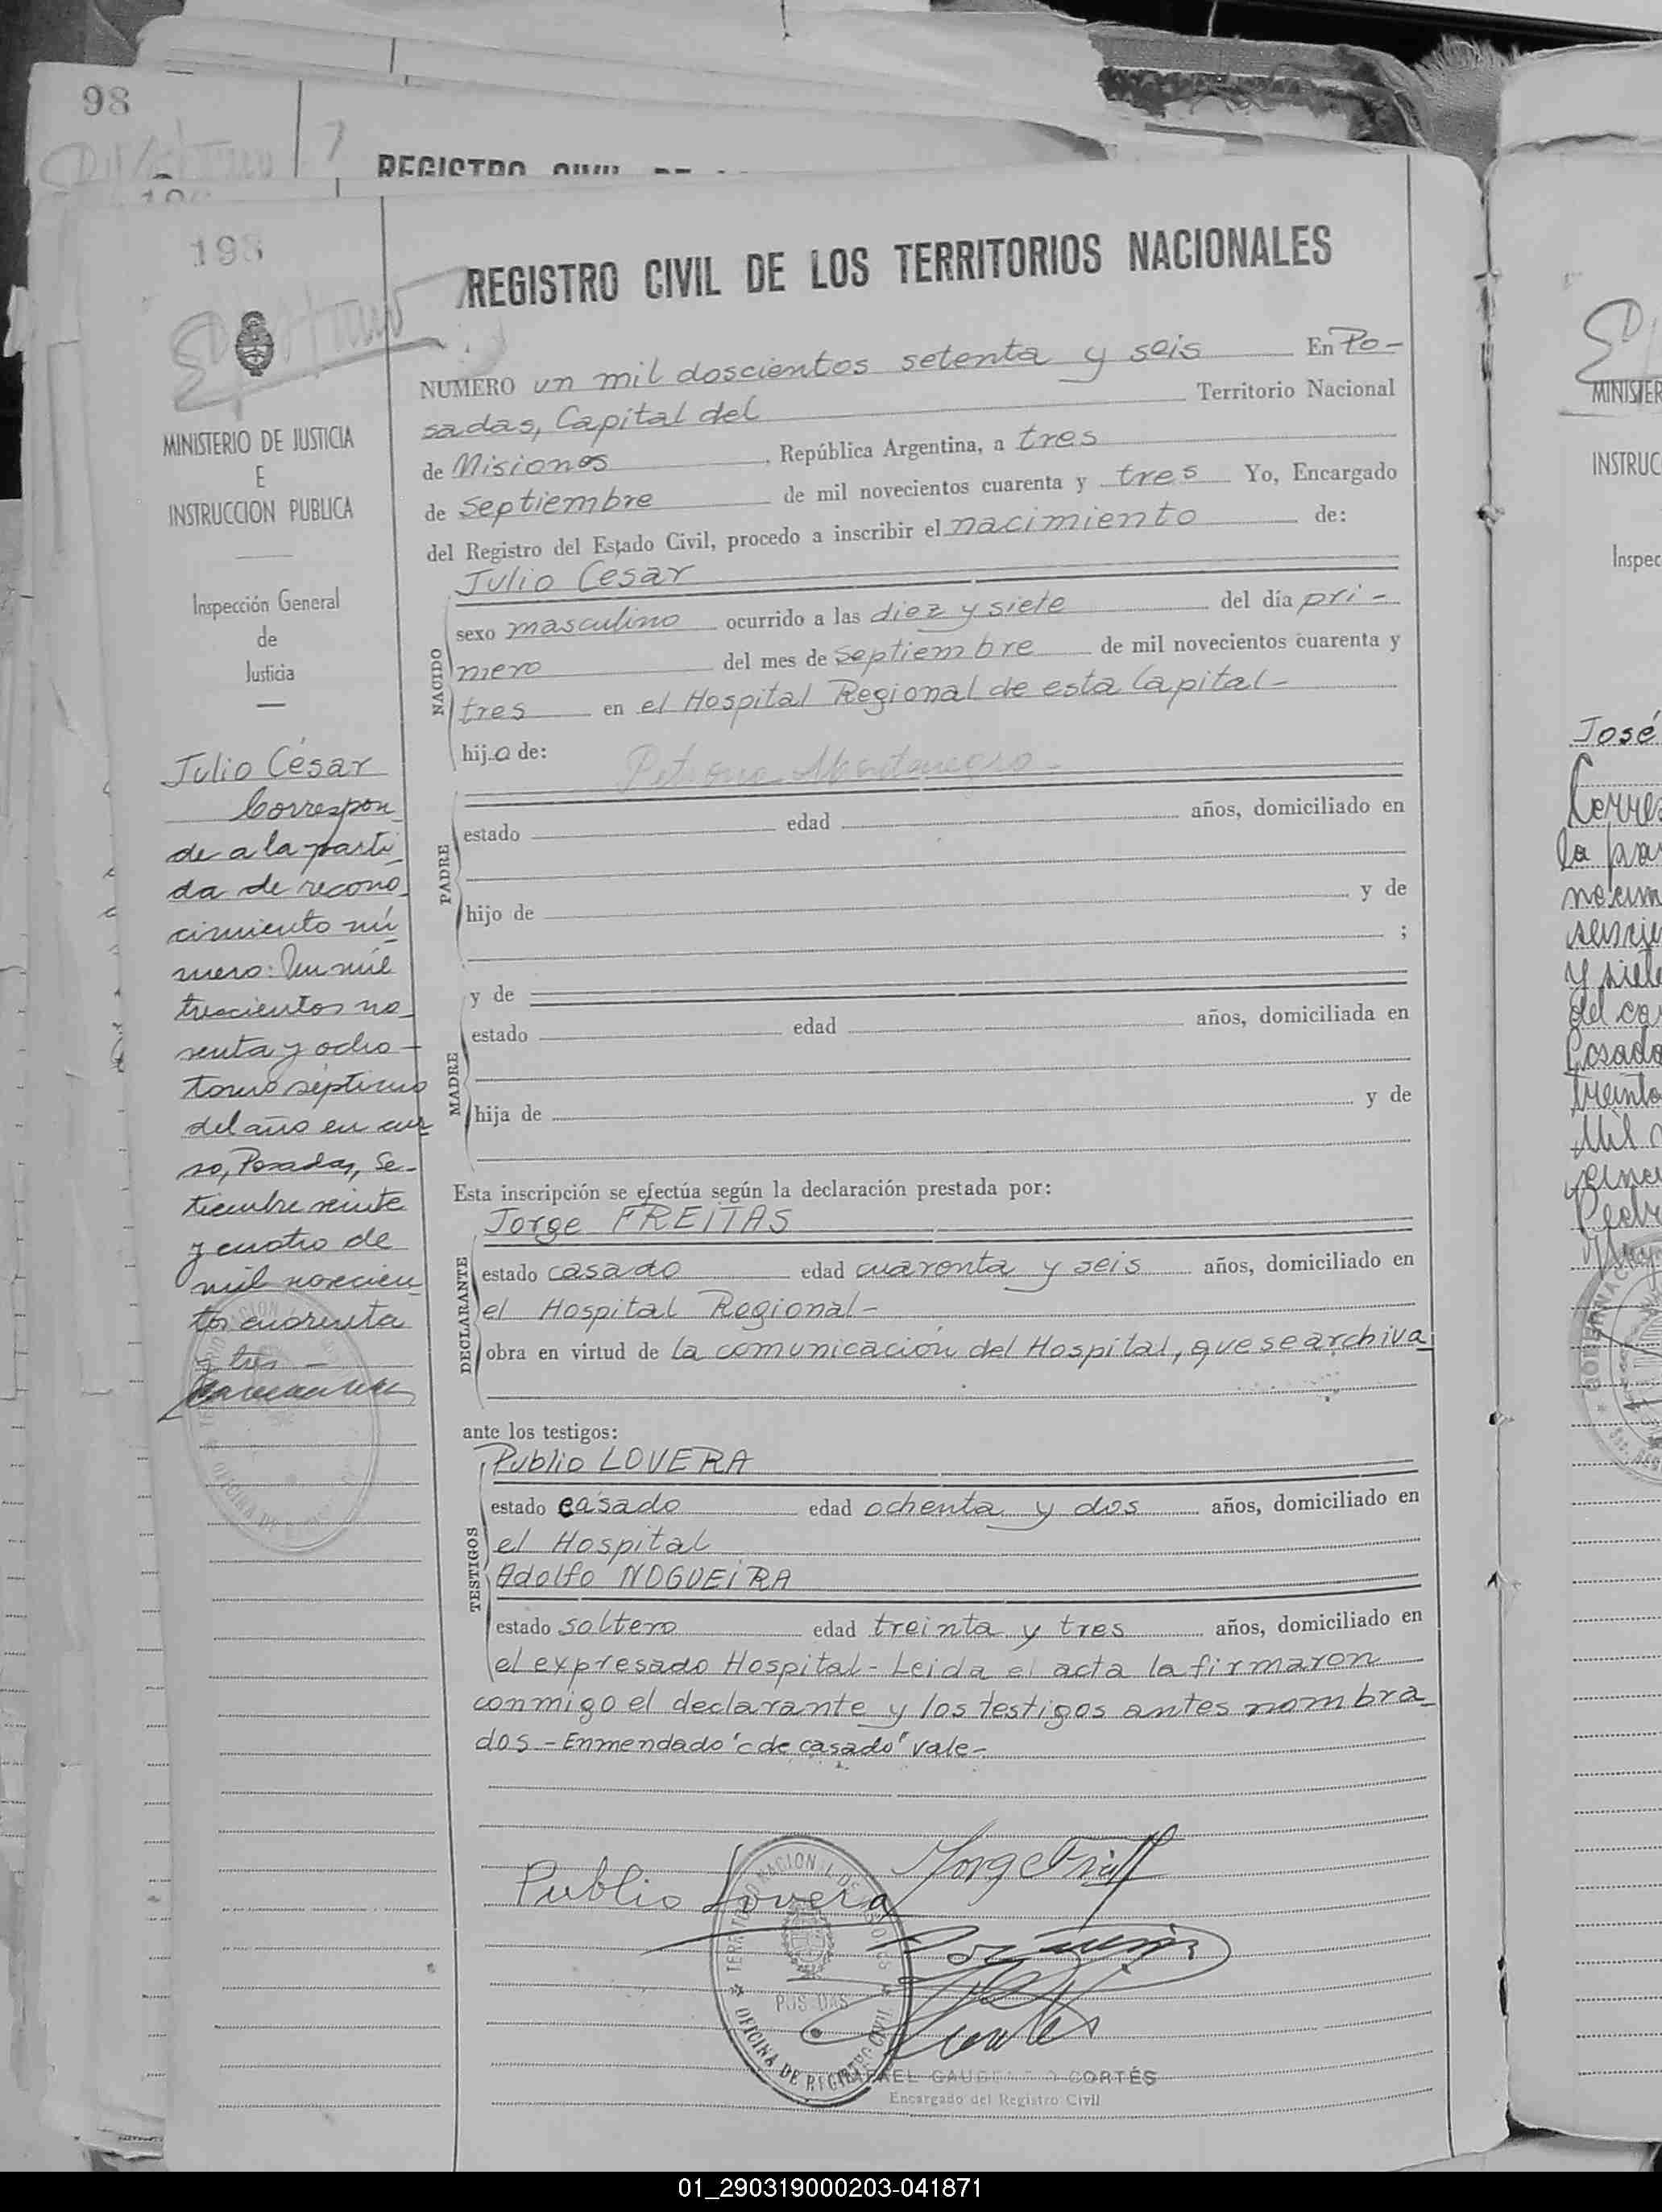 98
REGISTRO CIVIL DE
193
REGISTRO CIVIL DE LOS TERRITORIOS NACIONALES
MINISTERIO DE JUSTICIA
E
INSTRUCCION PUBLICA
Inspección General
de
Justicia
NUMERO un mil doscientos setenta y seis En Po-
sadas, Capital del Territorio Nacional
de Misiones, República Argentina, a tres
de septiembre de mil novecientos cuarenta y tres Yo, Encargado
del Registro del Estado Civil, procedo a inscribir el nacimiento de:
NACIDO
Julio Cesar
sexo masculino ocurrido a las diez y siete del día pri-
mero del mes de septiembre de mil novecientos cuarenta y
tres en el Hospital Regional de esta Capital-
hijo de: Petrona
PADRE
estado edad años, domiciliado en
hijo de y de
;
y de
MADRE
estado edad años, domiciliada en
hija de y de
Esta inscripción se efectúa según la declaración prestada por:
DECLARANTE
Jorge FREITAS
estado casado edad cuarenta y seis años, domiciliado en
el Hospital Regional-
obra en virtud de la comunicación del Hospital, que se archiva
ante los testigos:
TESTIGOS
Publio LOVERA
estado casado edad ochenta y dos años, domiciliado en
el Hospital
Adolfo NOGUEIRA
estado soltero edad treinta y tres años, domiciliado en
el expresado Hospital- Leida el acta la firmaron
conmigo el declarante y los testigos antes nombra-
dos - Enmendado "c de casado" vale-
Publio Lovera
TERRITORIO NACIONAL DE MISIONES
POSADAS
OFICINA DE REGISTRO CIVIL
CORTÉS
Encargado del Registro Civil
Julio César
Correspon
de a la parti
da de recono
cimiento nú
mero: Un mil
trescientos no
venta y ocho -
tomo séptimo
del año en cur
so, Posadas, Se-
tiembre veinte
y cuatro de
mil novecien
tos cuarenta
y tres -
MINISTER
INSTRUC
Inspec
José
Corres
la par
Posada
01_290319000203-041871